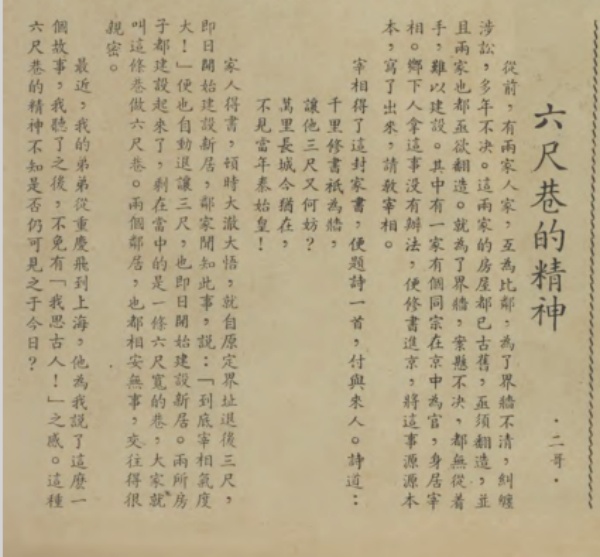 六尺巷的精神
·二哥·
從前，有兩家人家，互為比鄰，為了界牆不清，糾纏
涉訟，多年不決。這兩家的房屋都已古舊，亟須翻造，並
且兩家也都亟欲翻造。就為了界牆，案懸不決，都無從着
手，難以建設。其中有一家有個同宗在京中為官，身居宰
相。鄉下人拿這事没有辦法，便修書進京，將這事源源本
本，寫了出來，請教宰相。
宰相得了這封家書，便題詩一首，付與來人。詩道：
千里修書祇為牆，
讓他三尺又何妨？
萬里長城今猶在，
不見當年秦始皇！
家人得書，頓時大澈大悟，就自原定界址退後三尺，
即日開始建設新居，鄰家聞知此事，說：「到底宰相氣度
大！」便也自動退讓三尺，也即日開始建設新居。兩所房
子都建設起來了，剩在當中的是一條六尺寬的巷，大家就
叫這條巷做六尺巷。兩個鄰居，也都相安無事，交往得很
親密。
最近，我的弟弟從重慶飛到上海，他為我說了這麽一
個故事，我聽了之後，不免有「我思古人！」之感。這種
六尺巷的精神不知是否仍可見之于今日？